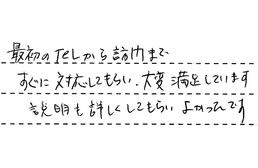 最初のTELから訪問まで
すぐに対応してもらい、大変満足しています
説明も詳しくしてもらいよかったです